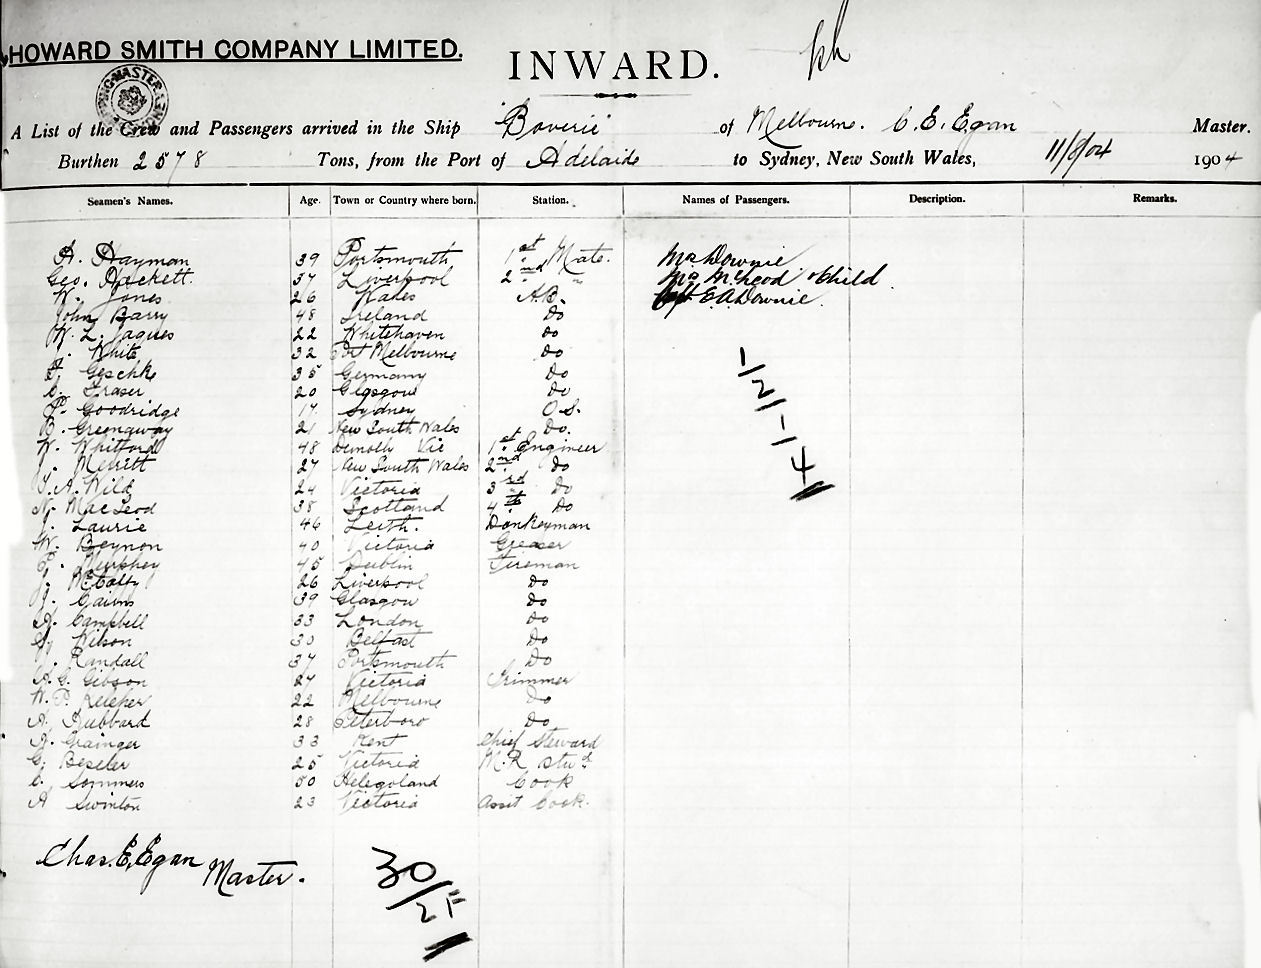 HOWARD SMITH COMPANY LIMITED.
INWARD.
A List of the Crew and Passengers arrived in the Ship Boverie of Melbourne. C. E. Egan Master.
Burthen 2578 Tons, from the Port of Adelaide to Sydney, New South Wales, 11/8/04 1904
Seamen's Names. Age. Town or Country where born. Station. Names of Passengers. Description. Remarks.
A. Hayman 39 Portsmouth 1st Mate. Mrs Downie
Geo. Hackett. 37 Liverpool 2nd " Mrs McLeod & Child
W. Jones 26 Wales A.B. Capt E. A. Downie
John Barry 48 Ireland Do
W. L. Jaques 22 Whitehaven Do
White 32 Port Melbourne Do
Geschke 35 Germany Do
C. Fraser 20 Glasgow Do
P. Goodridge 17 Sydney O.S.
B. Greenaway 21 New South Wales Do.
W. Whitford 48 Vic 1st Engineer
J. Merritt 27 New South Wales 2nd Do
J. A. Wild 24 Victoria 3rd Do
N. MacLeod 38 Scotland 4th Do
J. Laurie 46 Leith. Donkeyman
W. Beynon 40 Victoria Greaser
Murphey 45 Dublin Fireman
J. 26 Liverpool Do
J. Cairns 39 Glasgow Do
A. Campbell 33 London Do
Wilson 30 Belfast Do
Randall 37 Portsmouth Do
A. G. Gibson 27 Victoria Trimmer
W. P. Kelcher 22 Melbourne Do
A. Hubbard 28 Peterboro Do
A. Grainger 33 Kent Chief Steward
G. Beseler 25 Victoria M.R. Stwd
C. Sommers 50 Helegoland Cook
A Swinton 23 Victoria Asst Cook.
1/2/-14
Chas. E. Egan Master.
30/2F